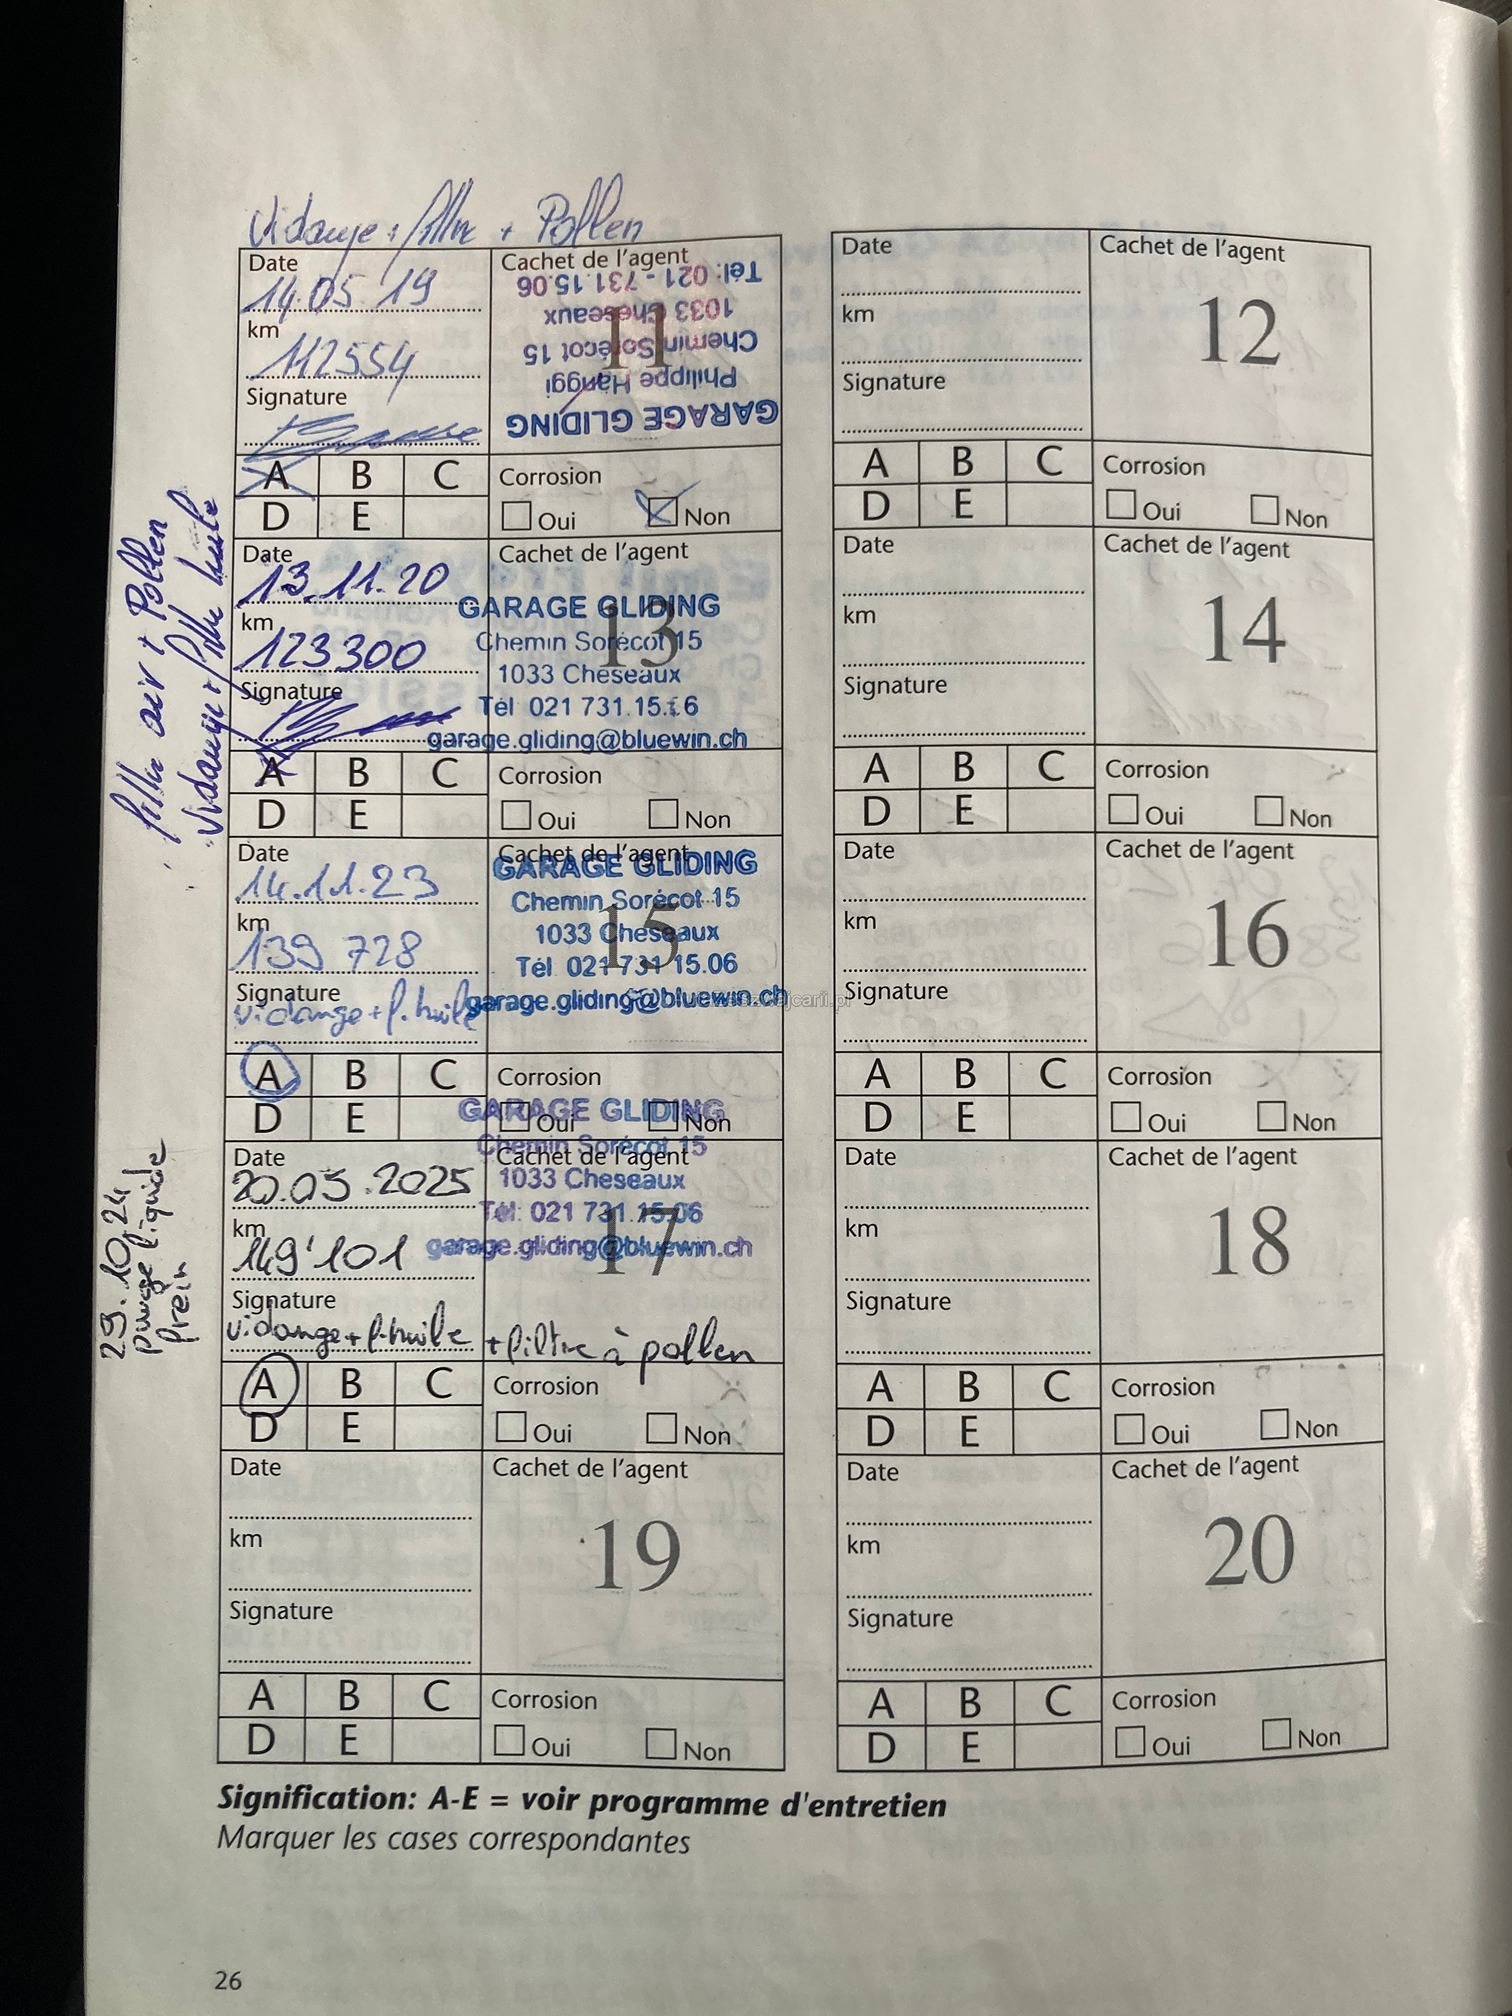 Vidange + filtre + Pollen
Date
14.05.19
km
112554
Signature
Cachet de l'agent
11
GARAGE GLIDING
Philippe Hänggi
Chemin Sorécot 15
1033 Cheseaux
Tél: 021 - 731.15.06
A B C
D E
Corrosion
Oui Non
filtre air + Pollen
Vidange + filtre huile
Date
13.11.20
km
123300
Signature
Cachet de l'agent
13
GARAGE GLIDING
Chemin Sorécot 15
1033 Cheseaux
Tél 021 731.15.06
garage.gliding@bluewin.ch
A B C
D E
Corrosion
Oui Non
Date
14.11.23
km
139 728
Signature
vidange + f. huile
Cachet de l'agent
15
GARAGE GLIDING
Chemin Sorécot 15
1033 Cheseaux
Tél 021 731 15.06
garage.gliding@bluewin.ch
A B C
D E
Corrosion
Oui Non
29.10.24
purge liquide
frein
Date
20.05.2025
km
149'101
Signature
vidange + f. huile + filtre à pollen
Cachet de l'agent
17
GARAGE GLIDING
Chemin Sorécot 15
1033 Cheseaux
Tél: 021 731.15.06
garage.gliding@bluewin.ch
A B C
D E
Corrosion
Oui Non
Date
km
Signature
Cachet de l'agent
19
A B C
D E
Corrosion
Oui Non
Date
km
Signature
Cachet de l'agent
12
A B C
D E
Corrosion
Oui Non
Date
km
Signature
Cachet de l'agent
14
A B C
D E
Corrosion
Oui Non
Date
km
Signature
Cachet de l'agent
16
A B C
D E
Corrosion
Oui Non
Date
km
Signature
Cachet de l'agent
18
A B C
D E
Corrosion
Oui Non
Date
km
Signature
Cachet de l'agent
20
A B C
D E
Corrosion
Oui Non
Signification: A-E = voir programme d'entretien
Marquer les cases correspondantes
26